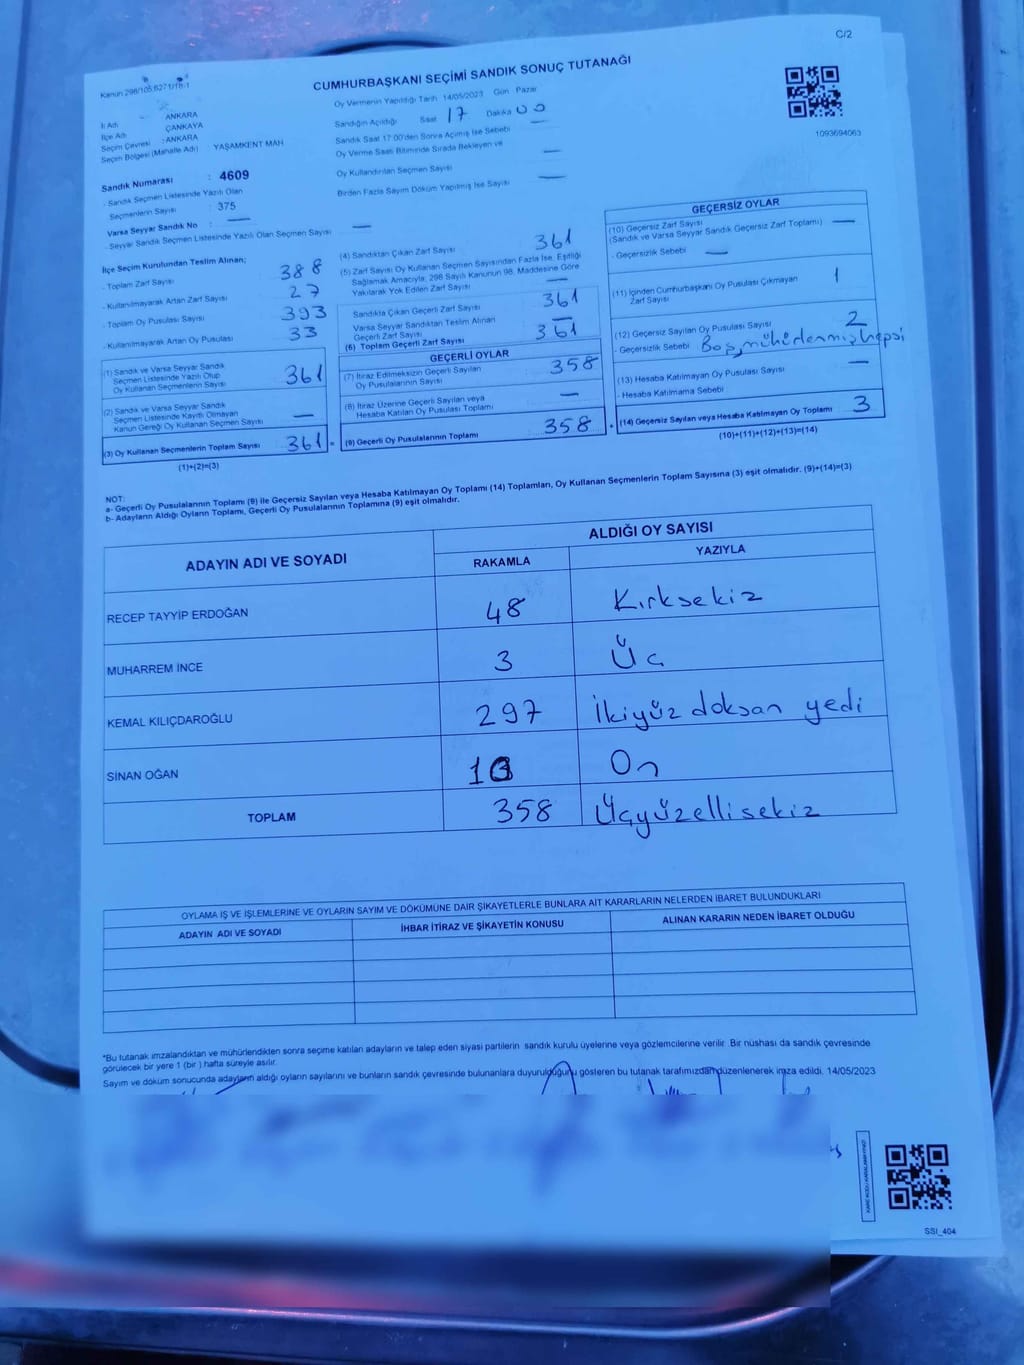 C/2
Kanun 298/105,6271/18-1
CUMHURBAŞKANI SEÇİMİ SANDIK SONUÇ TUTANAĞI
1093694063
İl Adı : ANKARA
İlçe Adı : ÇANKAYA
Seçim Çevresi : ANKARA
Seçim Bölgesi (Mahalle Adı) YAŞAMKENT MAH
Sandık Numarası : 4609
- Sandık Seçmen Listesinde Yazılı Olan
Seçmenlerin Sayısı : 375
Varsa Seyyar Sandık No : —
- Seyyar Sandık Seçmen Listesinde Yazılı Olan Seçmen Sayısı —
Oy Vermenin Yapıldığı Tarih 14/05/2023 Gün Pazar
Sandığın Açıldığı Saat 17 Dakika 00
Sandık Saat 17:00'den Sonra Açılmış İse Sebebi —
Oy Verme Saati Bitiminde Sırada Bekleyen ve
Oy Kullandırılan Seçmen Sayısı —
Birden Fazla Sayım Döküm Yapılmış İse Sayısı —
İlçe Seçim Kurulundan Teslim Alınan;
- Toplam Zarf Sayısı 388
- Kullanılmayarak Artan Zarf Sayısı 27
- Toplam Oy Pusulası Sayısı 393
- Kullanılmayarak Artan Oy Pusulası 33
(1) Sandık ve Varsa Seyyar Sandık
Seçmen Listesinde Yazılı Olup
Oy Kullanan Seçmenlerin Sayısı 361
(2) Sandık ve Varsa Seyyar Sandık
Seçmen Listesinde Kayıtlı Olmayan
Kanun Gereği Oy Kullanan Seçmen Sayısı —
(3) Oy Kullanan Seçmenlerin Toplam Sayısı 361 =
(1)+(2)=(3)
(4) Sandıktan Çıkan Zarf Sayısı 361
(5) Zarf Sayısı Oy Kullanan Seçmen Sayısından Fazla İse, Eşitliği
Sağlamak Amacıyla; 298 Sayılı Kanunun 98. Maddesine Göre
Yakılarak Yok Edilen Zarf Sayısı —
Sandıkta Çıkan Geçerli Zarf Sayısı 361
Varsa Seyyar Sandıktan Teslim Alınan
Geçerli Zarf Sayısı —
(6) Toplam Geçerli Zarf Sayısı 361
GEÇERLİ OYLAR
(7) İtiraz Edilmeksizin Geçerli Sayılan
Oy Pusulalarının Sayısı 358
(8) İtiraz Üzerine Geçerli Sayılan veya
Hesaba Katılan Oy Pusulası Toplamı —
(9) Geçerli Oy Pusulalarının Toplamı 358 +
GEÇERSİZ OYLAR
(10) Geçersiz Zarf Sayısı —
(Sandık ve Varsa Seyyar Sandık Geçersiz Zarf Toplamı)
- Geçersizlik Sebebi —
(11) İçinden Cumhurbaşkanı Oy Pusulası Çıkmayan
Zarf Sayısı 1
(12) Geçersiz Sayılan Oy Pusulası Sayısı 2
- Geçersizlik Sebebi Boş, mühürlenmiş hepsi
(13) Hesaba Katılmayan Oy Pusulası Sayısı —
- Hesaba Katılmama Sebebi
(14) Geçersiz Sayılan veya Hesaba Katılmayan Oy Toplamı 3
(10)+(11)+(12)+(13)=(14)
NOT:
a- Geçerli Oy Pusulalarının Toplamı (9) ile Geçersiz Sayılan veya Hesaba Katılmayan Oy Toplamı (14) Toplamları, Oy Kullanan Seçmenlerin Toplam Sayısına (3) eşit olmalıdır. (9)+(14)=(3)
b- Adayların Aldığı Oyların Toplamı, Geçerli Oy Pusulalarının Toplamına (9) eşit olmalıdır.
ADAYIN ADI VE SOYADI ALDIĞI OY SAYISI
RAKAMLA YAZIYLA
RECEP TAYYİP ERDOĞAN 48 Kırksekiz
MUHARREM İNCE 3 Üç
KEMAL KILIÇDAROĞLU 297 İkiyüz doksan yedi
SİNAN OĞAN 10 On
TOPLAM 358 Üçyüzellisekiz
OYLAMA İŞ VE İŞLEMLERİNE VE OYLARIN SAYIM VE DÖKÜMÜNE DAİR ŞİKAYETLERLE BUNLARA AİT KARARLARIN NELERDEN İBARET BULUNDUKLARI
ADAYIN ADI VE SOYADI İHBAR İTİRAZ VE ŞİKAYETİN KONUSU ALINAN KARARIN NEDEN İBARET OLDUĞU
*Bu tutanak imzalandıktan ve mühürlendikten sonra seçime katılan adayların ve talep eden siyasi partilerin sandık kurulu üyelerine veya gözlemcilerine verilir. Bir nüshası da sandık çevresinde
görülecek bir yere 1 (bir ) hafta süreyle asılır.
Sayım ve döküm sonucunda adayların aldığı oyların sayılarını ve bunların sandık çevresinde bulunanlara duyurulduğunu gösteren bu tutanak tarafımızdan düzenlenerek imza edildi. 14/05/2023
SSI_404